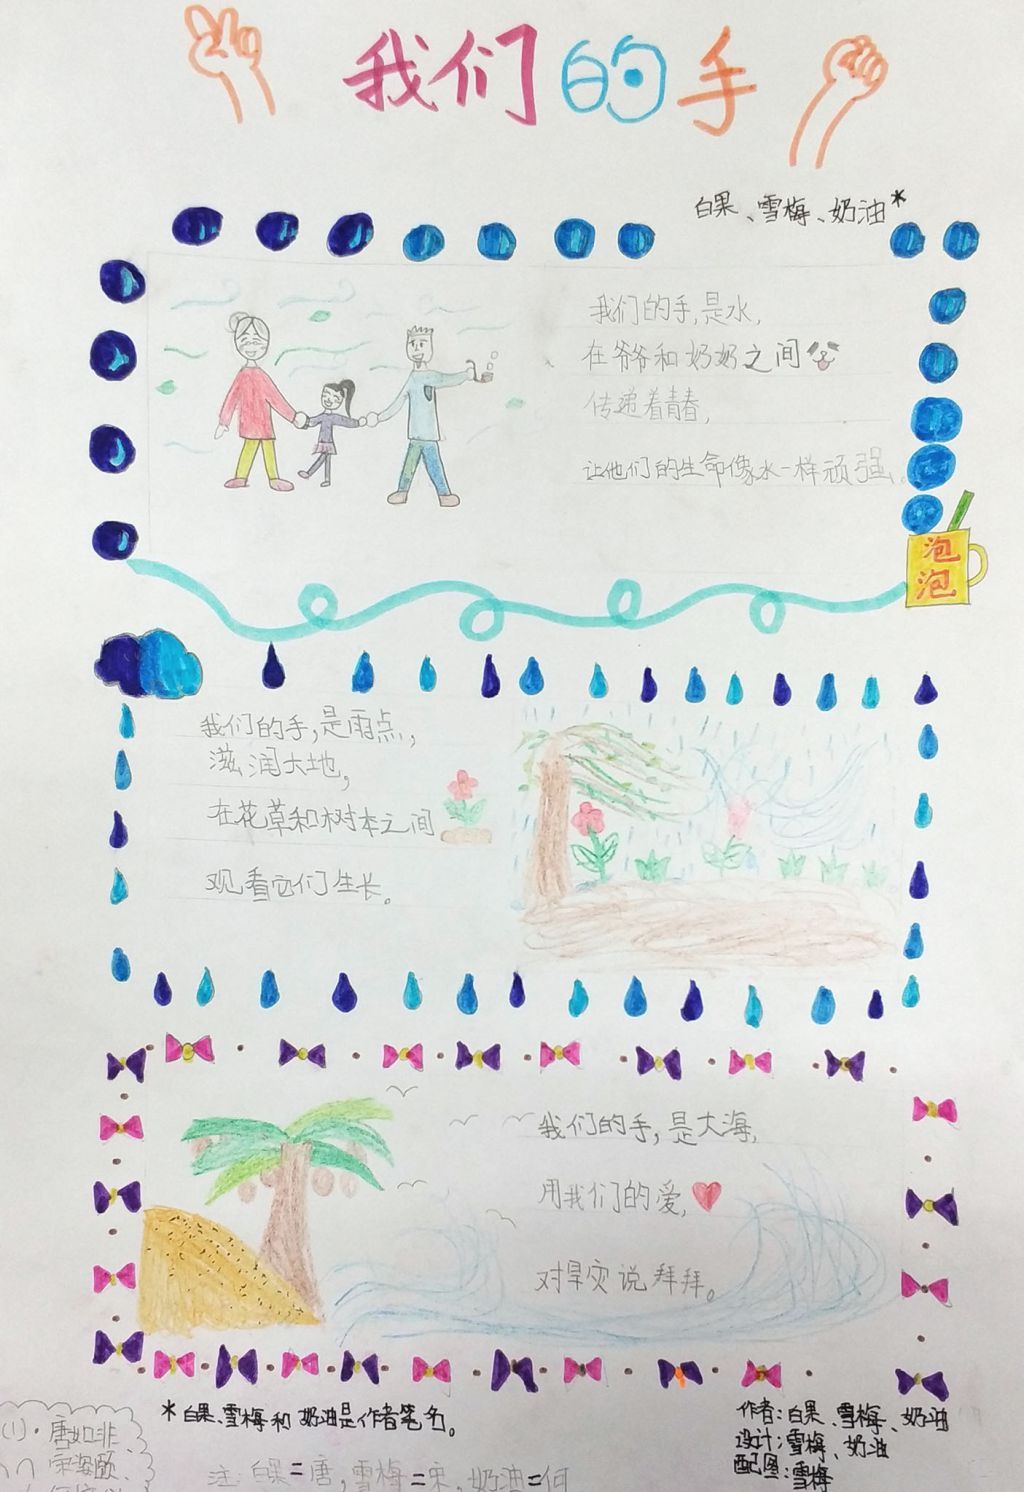 我们的手
白果、雪梅、奶油*
我们的手,是水,
在爷爷和奶奶之间
传递着青春,
让他们的生命像水一样顽强。
泡
泡
我们的手,是雨点,
滋润大地,
在花草和树木之间
观看它们生长。
我们的手,是大海,
用我们的爱,
对旱灾说拜拜。
*白果、雪梅和奶油是作者笔名。
作者:白果、雪梅、奶油
设计:雪梅、奶油
配图:雪梅
(1)·唐如非、
宋姿颐、
注:白果=唐,雪梅=宋,奶油=何